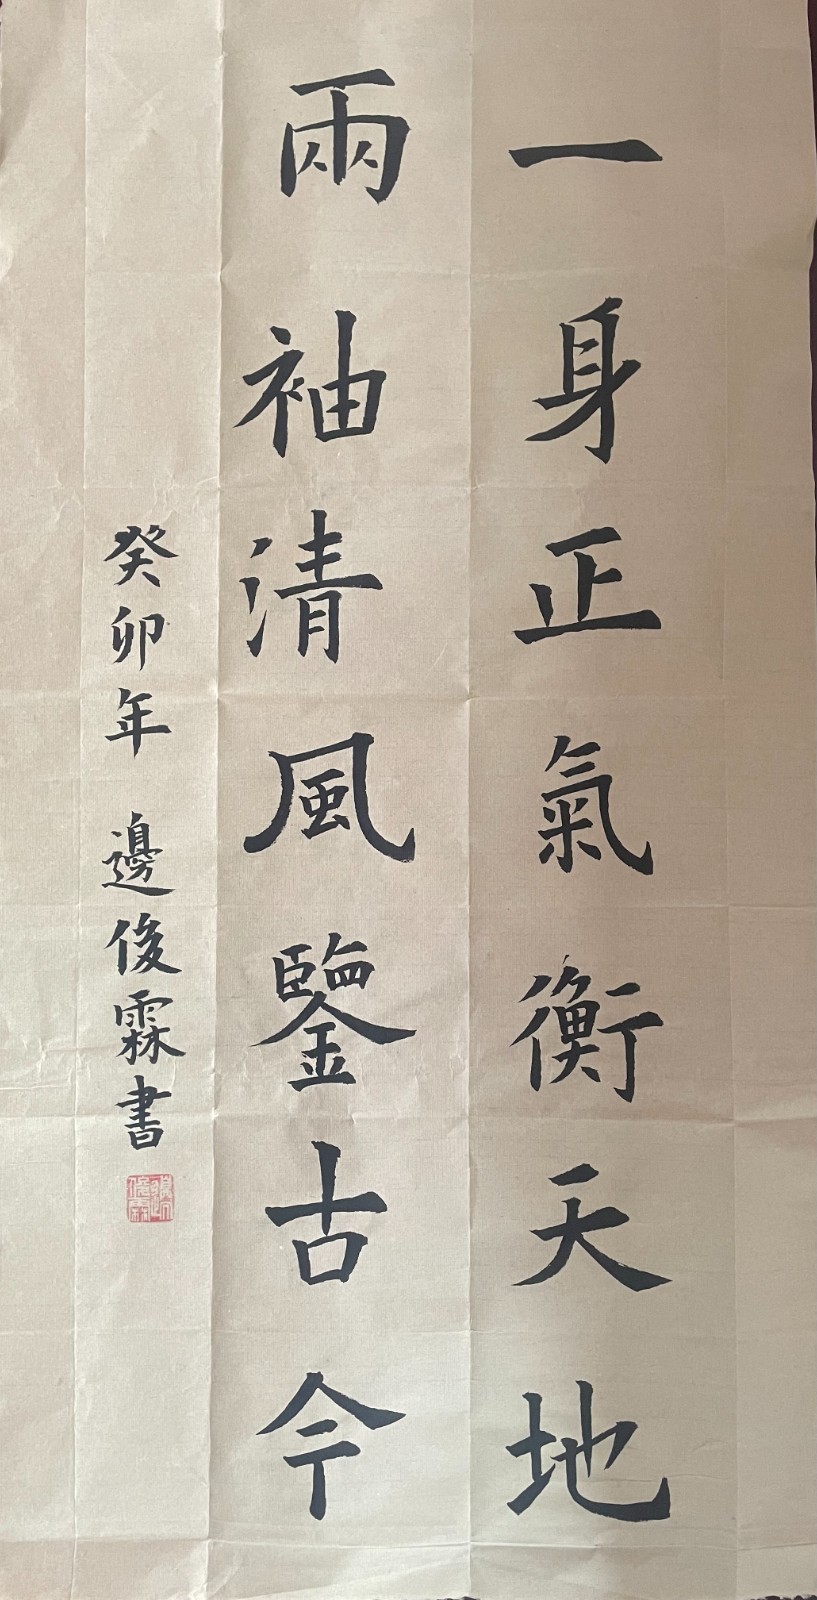 一身正氣衡天地
兩袖清風鑒古今
癸卯年 邊俊霖書